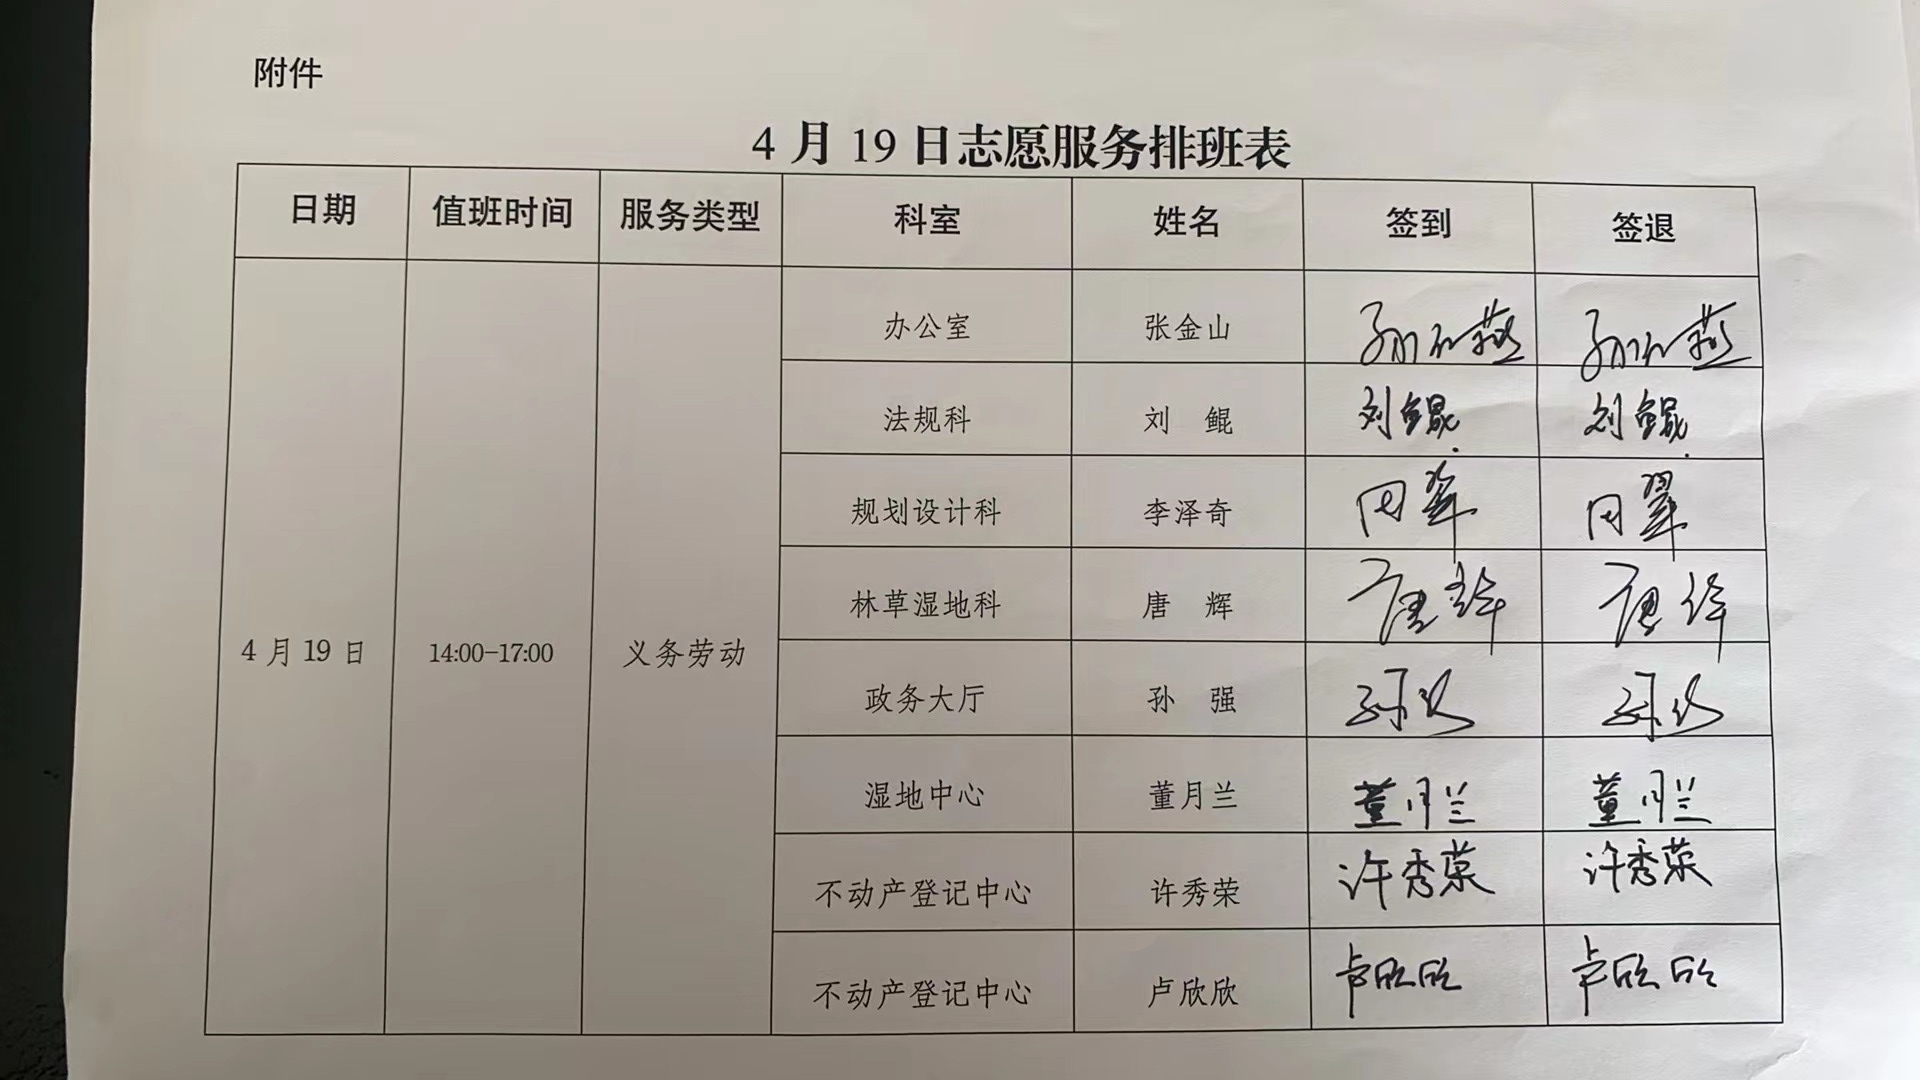 附件
4月19日志愿服务排班表
日期 值班时间 服务类型 科室 姓名 签到 签退
4月19日 14:00-17:00 义务劳动
办公室 张金山
法规科 刘鲲 刘鲲 刘鲲
规划设计科 李泽奇
林草湿地科 唐辉 唐辉 唐辉
政务大厅 孙强 孙强 孙强
湿地中心 董月兰 董月兰 董月兰
不动产登记中心 许秀荣 许秀荣 许秀荣
不动产登记中心 卢欣欣 卢欣欣 卢欣欣